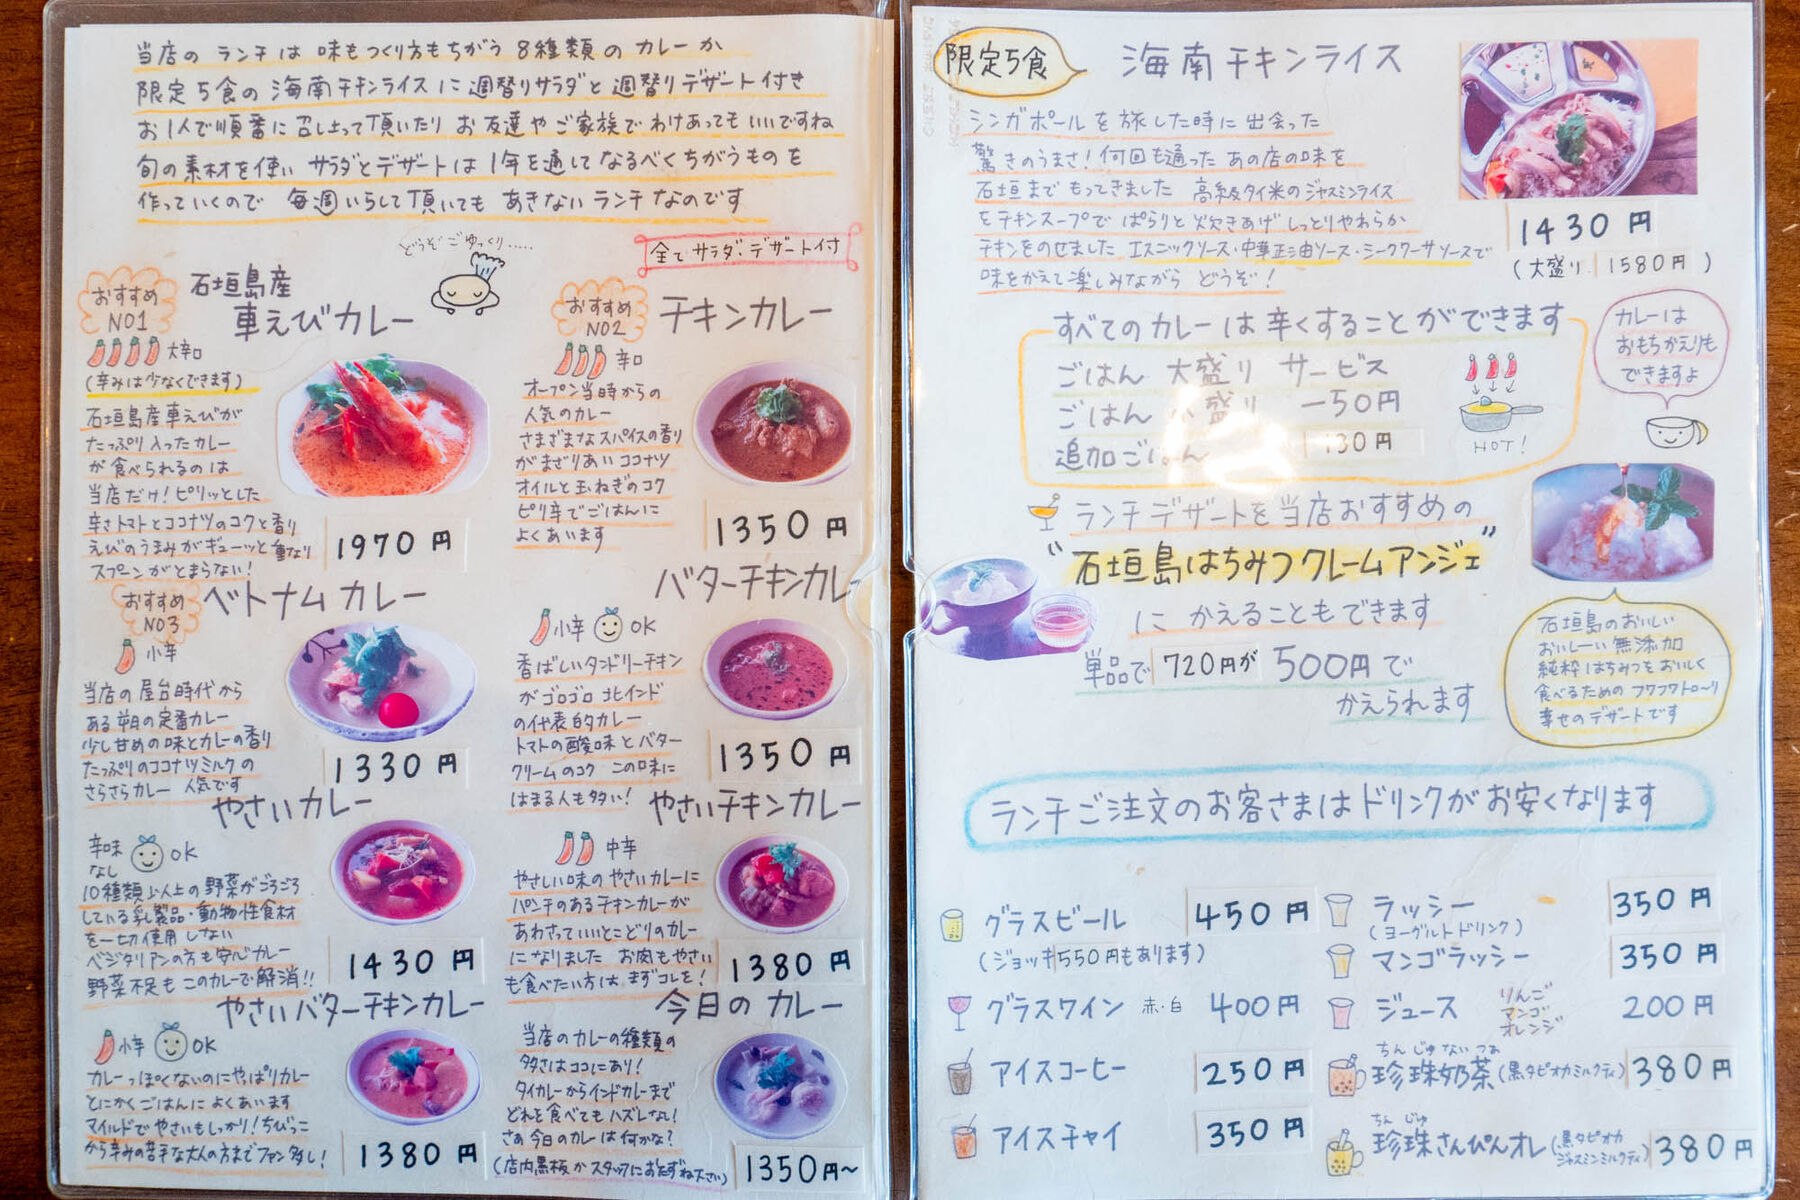 当店の ランチは 味もつくり方もちがう 8種類の カレーか
限定5食の 海南チキンライスに 週替りサラダと 週替りデザート付き
お1人で順番に召し上って頂いたり お友達や ご家族で わけあっても いいですね
旬の素材を使い サラダとデザートは 1年を通して なるべくちがうものを
作っていくので 毎週いらして頂いても あきない ランチ なのです
どうぞごゆっくり.....
全て サラダ・デザート付
おすすめ
NO1
石垣島産
車えびカレー
大辛口
(辛みは少なくできます)
石垣島産車えびが
たっぷり入ったカレー
が食べられるのは
当店だけ!ピリッとした
辛さトマトとココナツのコクと香り
えびのうまみがギューッと重なり
スプーンがとまらない!
1970円
おすすめ
NO2
チキンカレー
辛口
オープン当時からの
人気のカレー
さまざまなスパイスの香り
がまざりあい ココナツ
オイルと玉ねぎのコク
ピリ辛でごはんに
よくあいます
1350円
おすすめ
NO3
ベトナムカレー
小辛
当店の屋台時代から
ある 朔の定番カレー
少し甘めの味とカレーの香り
たっぷりのココナツミルクの
さらさらカレー 人気です
1330円
バターチキンカレ
小辛 OK
香ばしいタンドリーチキン
がゴロゴロ 北インド
の代表的カレー
トマトの酸味とバター
クリームのコク この味に
はまる人も多い!
1350円
やさいカレー
辛味
なし
OK
10種類以上の野菜がごろごろ
している乳製品・動物性食材
を一切使用しない
ベジタリアンの方も安心カレー
野菜不足もこのカレーで解消!!
1430円
やさいチキンカレー
中辛
やさしい味のやさいカレーに
パンチのあるチキンカレーが
あわさっていいとこどりのカレー
になりました お肉もやさい
も食べたい方は まずコレを!
1380円
やさいバターチキンカレー
小辛 OK
カレーっぽくないのにやっぱりカレー
とにかくごはんに よくあいます
マイルドでやさいもしっかり!ちびっこ
から辛みの苦手な大人の方までファン多し!
1380円
今日の カレー
当店のカレーの種類の
多さはココにあり!
タイカレーからインドカレーまで
どれを食べてもハズレなし!
さあ今日のカレーは何かな?
(店内黒板かスタッフにおたずね下さい)
1350円~
限定5食
海南チキンライス
シンガポールを旅した時に出会った
驚きのうまさ!何回も通った あの店の味を
石垣までもってきました 高級タイ米のジャスミンライス
をチキンスープで ぱらりと 炊きあげ しっとりやわらか
チキンをのせました エスニックソース・中華正油ソース・シークワーサソースで
味をかえて楽しみながら どうぞ!
1430円
(大盛り 1580円)
すべてのカレーは辛くすることができます
ごはん 大盛り サービス
ごはん 小盛り -50円
追加ごはん 130円
HOT!
カレーは
おもちかえりも
できますよ
ランチデザートを当店おすすめの
"石垣島はちみつクレームアンジェ"
に かえることもできます
単品で 720円が 500円で
かえられます
石垣島のおいしい
おいしーい 無添加
純粋はちみつをおいしく
食べるための フワフワトロ～リ
幸せのデザートです
ランチご注文のお客さまはドリンクがお安くなります
グラスビール 450円
(ジョッキ550円もあります)
グラスワイン 赤・白 400円
アイスコーヒー 250円
アイスチャイ 350円
ラッシー 350円
(ヨーグルトドリンク)
マンゴラッシー 350円
ジュース りんご マンゴ オレンジ 200円
ちん じゅ ない つぁ
珍珠奶茶(黒タピオカミルクティ) 380円
ちん じゅ
珍珠さんぴんオレ(黒タピオカ ジャスミンミルクティ) 380円